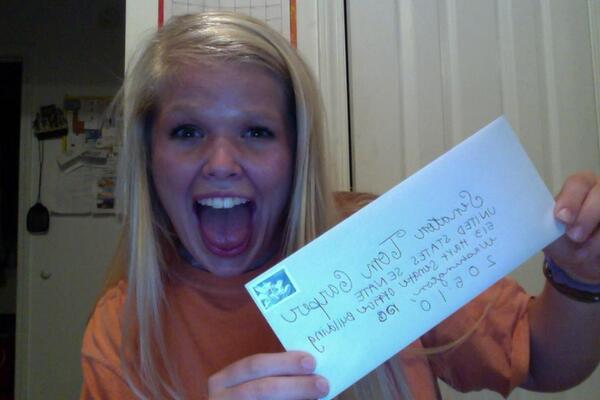 Senator Tom Carper
UNITED STATES SENATE
513 HART Senate OFFICE BUILDING
Washington, DC
20510